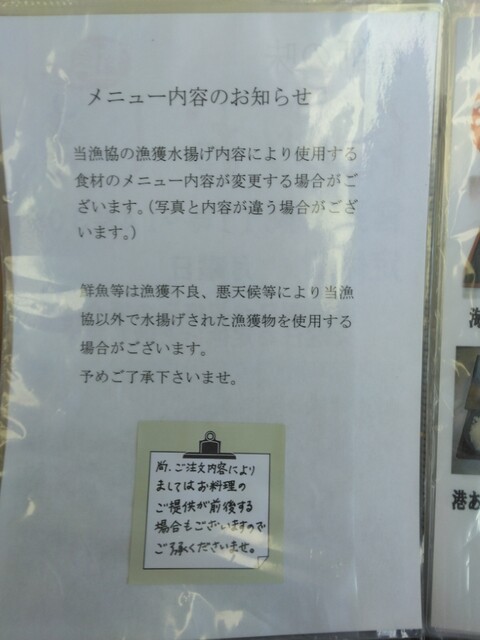 メニュー内容のお知らせ
当漁協の漁獲水揚げ内容により使用する
食材のメニュー内容が変更する場合がご
ざいます。(写真と内容が違う場合がござ
います。)
鮮魚等は漁獲不良、悪天候等により当漁
協以外で水揚げされた漁獲物を使用する
場合がございます。
予めご了承下さいませ。
尚、ご注文内容により
ましてはお料理の
ご提供が前後する
場合もございますので
ご了承くださいませ。
海
港お